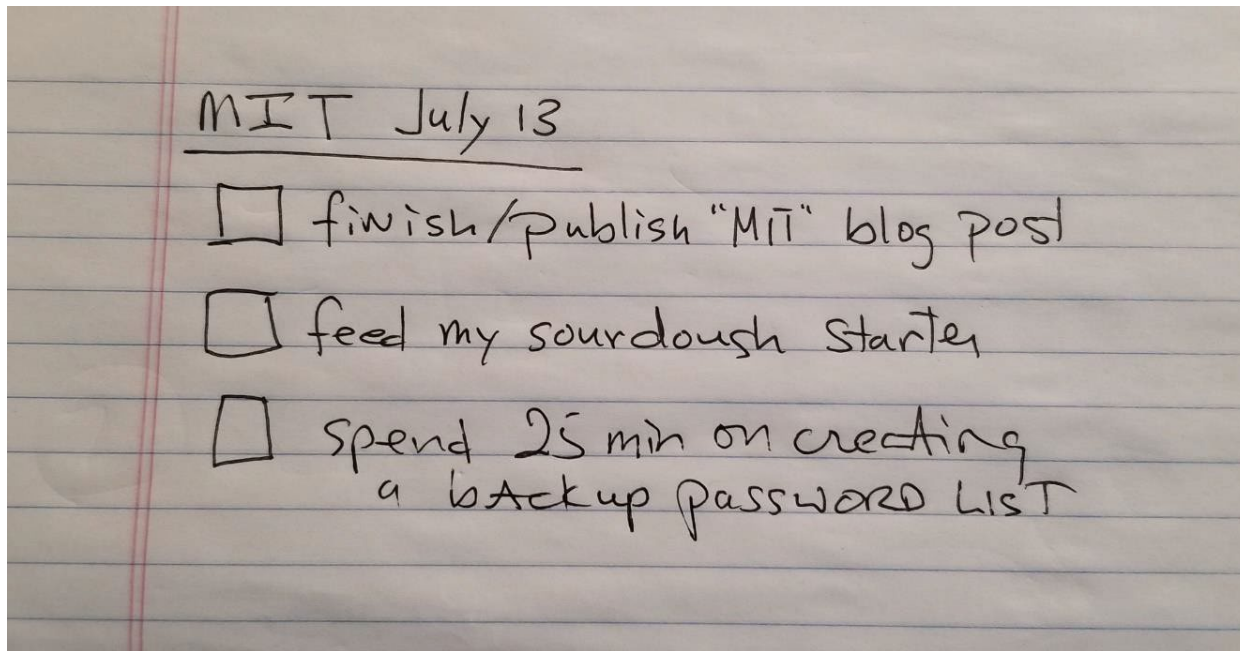 MIT July 13
finish/publish "MIT" blog post
feed my sourdough starter
spend 25 min on creating
a backup password list